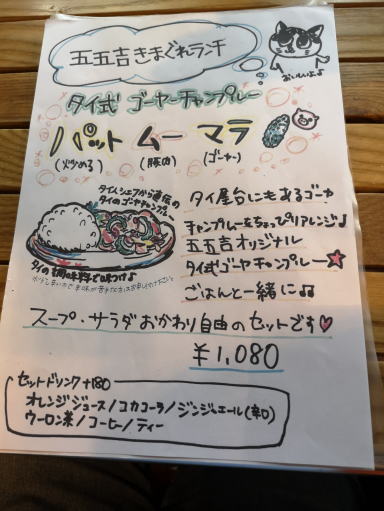 五五吉きまぐれランチ
おいしいよ♪
タイ式 ゴーヤーチャンプルー
パット ムー マラ
(炒める) (豚肉) (ゴーヤー)
タイ人シェフから直伝の
タイのゴーヤチャンプルー
タイの調味料で味つけ♪
タイ屋台にもあるゴーヤ
チャンプルーをちょっぴりアレンジ♪
五五吉オリジナル
タイ式ゴーヤチャンプルー☆
ごはんと一緒に♫
スープ・サラダおかわり自由のセットです♡
¥1,080
セットドリンク +180
オレンジジュース/コカコーラ/ジンジャエール(辛口)
ウーロン茶/コーヒー/ティー